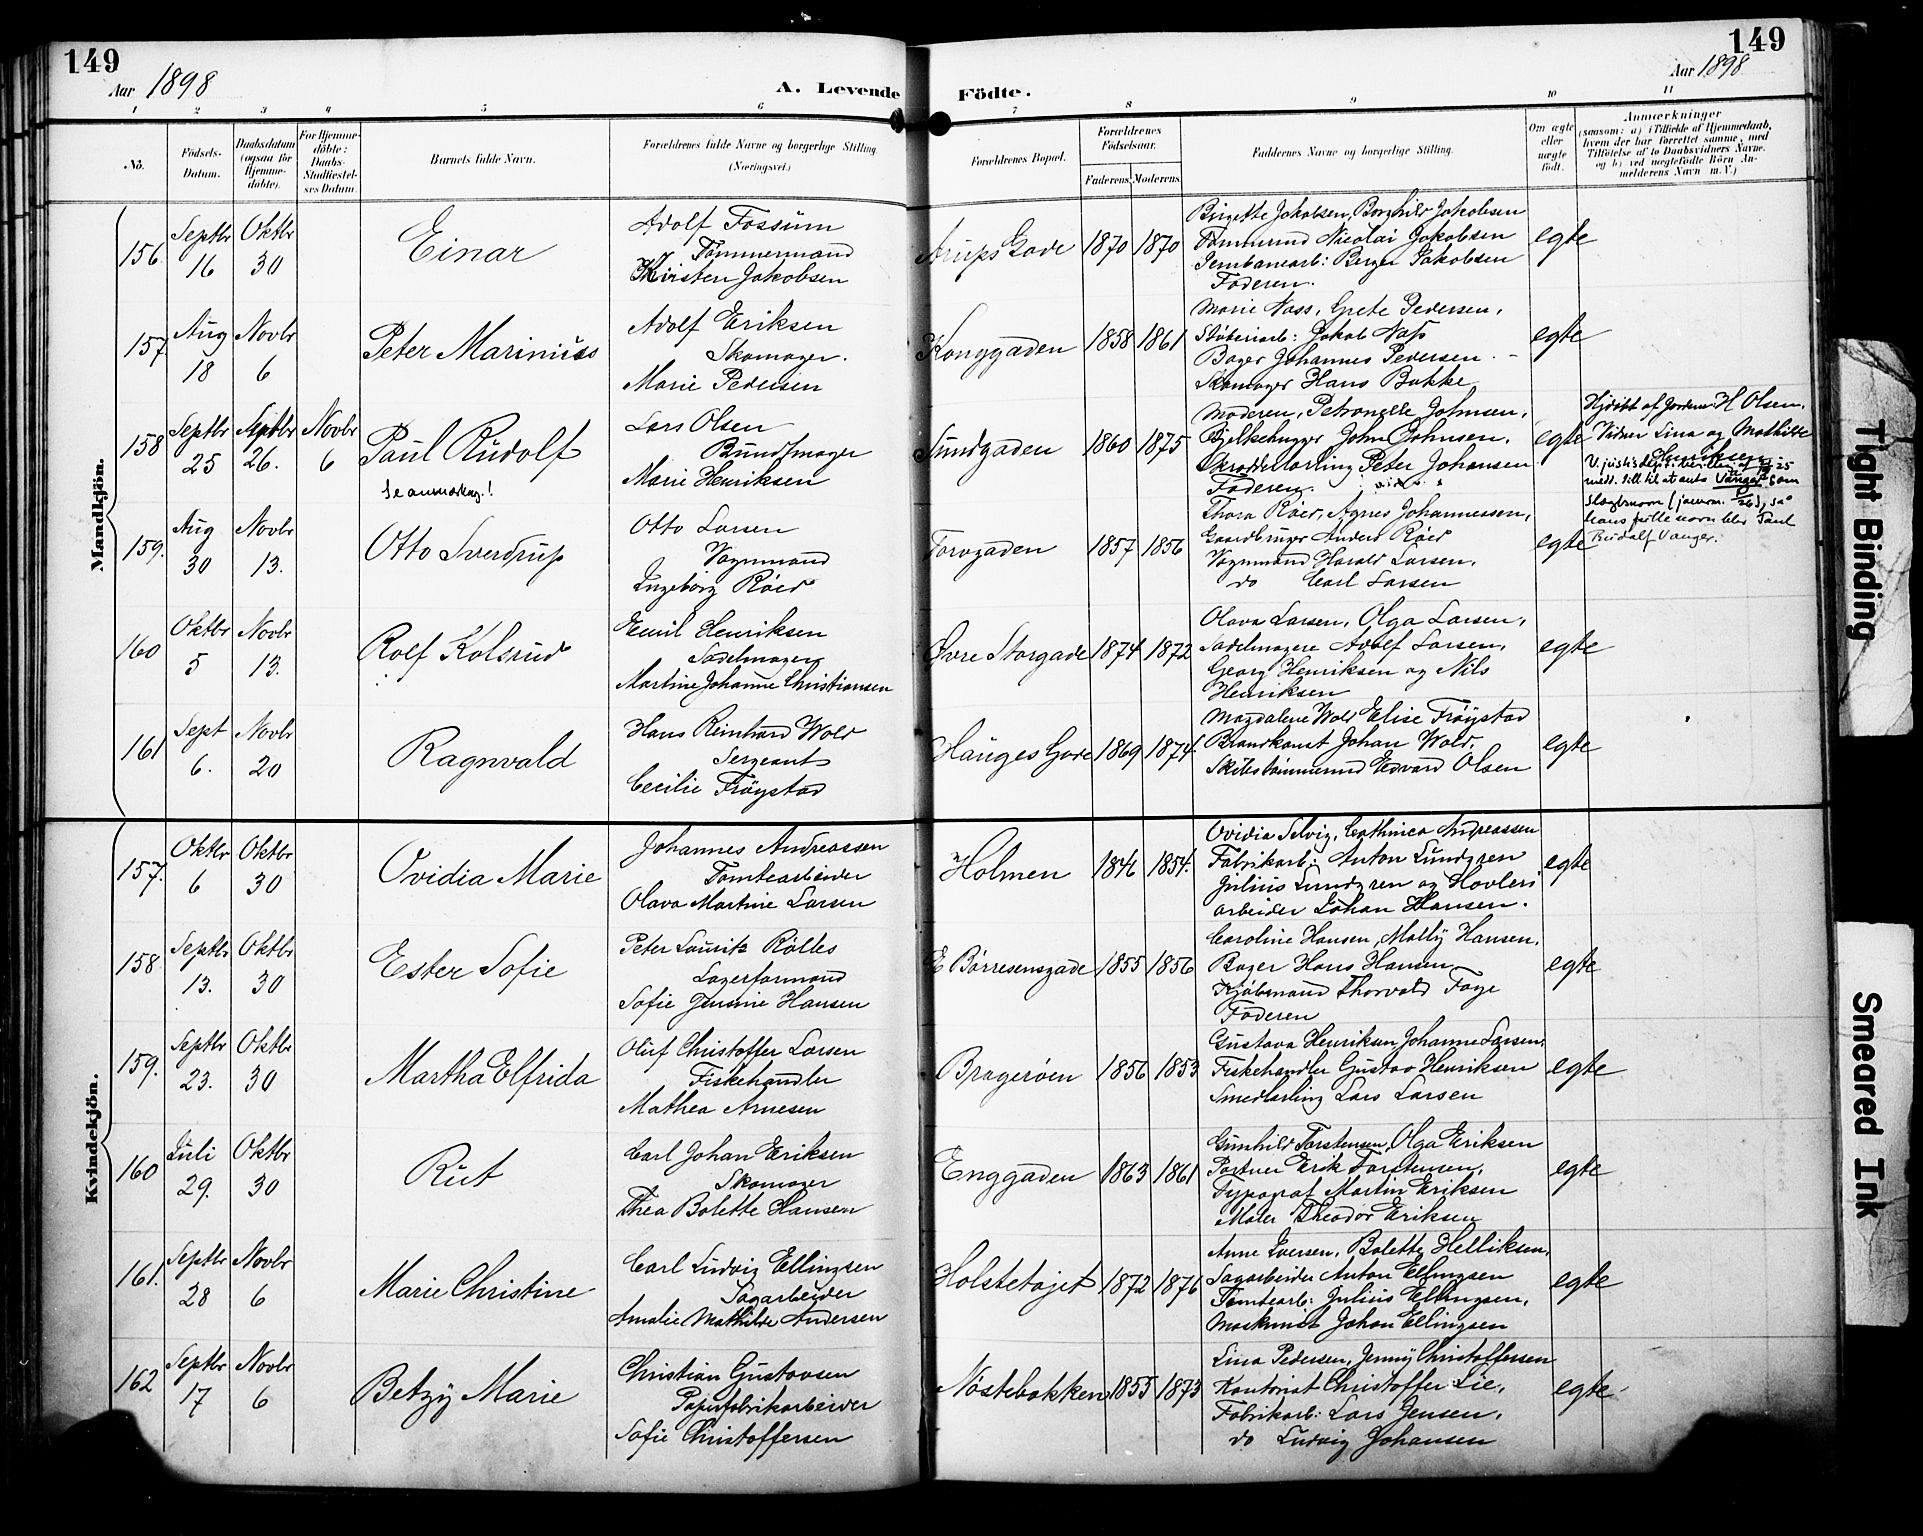 149
149
Aar 1898
A. Levende Födte.
Aar 1898
1 2 3 4 5 6 7 8 9 10 11
Nö.
Födsels-Datum.
Daabsdatum (ogsaa for Hjemme-döbte).
For Hjemme-döbte: Daabs-Stadfæstel-ses Datum.
Barnets fulde Navn.
Forældrenes fulde Navne og borgerlige Stilling. (Næringsvei.)
Forældrenes Bopæl.
Forældrenes Födselsaar.
Faderens. Moderens.
Faddernes Navne og borgerlige Stilling.
Om ægte eller uægte födt.
Anmærkninger
(saasom: a) i Tilfælde af Hjemmedaab, hvem der har forrettet samme, med Tilföielse af to Daabsvidners Navne. og b) ved uægtefödte Börn An-melderens Navn m. V.)
Mandkjön.
156 Septbr 16 Oktbr 30 Einar
Adolf Fossum
Tömmermand
Kirsten Jakobsen
Arups Gade 1870 1870
Birgette Jakobsen, Borghild Jakobsen
Tömmermd Nicolai Jakobsen
Jernbanearb: Berger Jakobsen
Faderen.
egte
157 Aug 18 Novbr 6 Peter Marinius
Adolf Eriksen
Skomager.
Marie Pedersen
Konggaden 1858 1861
Marie Nass, Grete Pedersen,
Støberiarb: Jakob Nass
Bager Johannes Pedersen
Skomager Hans Bakke
egte
158 Septbr 25 Septbr 26. Novbr 6 Paul Rudolf
Se anmerkng.!
Lars Olsen
Bundtmager
Marie Henriksen
Sundgaden 1860 1875
Moderen, Petronelle Johnsen,
Bjelkehugger John Johnsen,
Skrædderlærling Peter Johansen
Faderen.
egte
Hjdöbt af Jordem: H Olsen.
Vidner Lina og Mathilde
Henriksen
159. Aug 30 Novbr 13. Otto Sverdrup
Otto Larsen
Vognmand
Ingeborg Röed
Torvgaden 1857 1856
Thora Röed, Agnes Johannessen,
Gaardbruger Anders Röed
Vognmand Harald Larsen,
do Carl Larsen
egte
Rudolf Vanger.
160 Oktbr 5 Novbr 13. Rolf Kolsrud
Emil Henriksen
Sadelmager
Martine Johanne Christiansen
Øvre Storgade 1874 1872
Olava Larsen, Olga Larsen,
Sadelmagere Adolf Larsen,
Georg Henriksen og Nils
Henriksen
egte
161 Sept 6. Novbr 20 Ragnvald
Hans Reinhard Wold
Sergeant
Cecilie Fröystad
Hauges Gade 1869 1874.
Magdalene Wold Elise Fröystad
Brandkonst Johan Wold,
Skibstömmermd Edvard Olsen
egte
Kvindekjön.
157. Oktbr 6 Oktbr 30 Ovidia Marie
Johannes Andreassen
Tomtearbeider
Olava Martine Larsen
Holmen 1846 1854.
Ovidia Selvig, Cathinca Andreassen
Fabrikarb: Anton Lundgren
Julius Lundgren og Hovleri
arbeider Johan Hansen.
egte
158 Septbr 13. Oktbr 30 Ester Sofie
Peter Lauritz Rölles
Lagerformand
Sofie Jensine Hansen
E Börresensgade 1855 1856
Caroline Hansen, Molly Hansen,
Bager Hans Hansen
Kjöbmand Thorvald Foge
Faderen
egte
159. Septbr 23. Oktbr 30 Martha Elfrida
Oluf Christoffer Larsen
Fiskehandler
Mathea Arnesen
Bragerøen 1856 1853
Gustava Henriksen Johanne Larsen,
Fiskehandler Gustav Henriksen
Smedlærling Lars Larsen
egte
160 Juli 29. Oktbr 30 Rut
Carl Johan Eriksen
Skomager
Thea Bolette Hansen
Enggaden 1863 1861
Gunhild Torstensen, Olga Eriksen
Portner Erik Torstensen,
Typograf Martin Eriksen
Maler Theodor Eriksen
egte
161. Septbr 28 Novbr 6 Marie Christine
Carl Ludvig Ellingsen
Sagarbeider
Amalie Mathilde Andersen
Holstetøjet 1872 1876
Anne Iversen, Bolette Helliksen,
Sagarbeider Anton Ellingsen
Tomtearb: Julius Ellingsen,
Maskinist Johan Ellingsen
egte
162 Septbr 17 Novbr 6 Betzy Marie
Christian Gustavsen
Papirfabrikarbeider
Sofie Christoffersen
Nöstebakken 1855 1873
Lina Pedersen, Jenny Christoffersen
Kontorist Christoffer Lie,
Fabrikarb: Lars Jensen,
do Ludvig Johansen
egte
Tight Binding
Smeared Ink